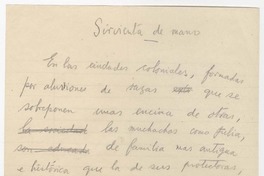 Sirvienta de mano
En las ciudades coloniales, formadas
por aluviones de razas que se
sobreponen unas encima de otras,
la sociedad las muchachas como Julia,
son educada de familia mas antigua
e histórica que la de sus protectoras,